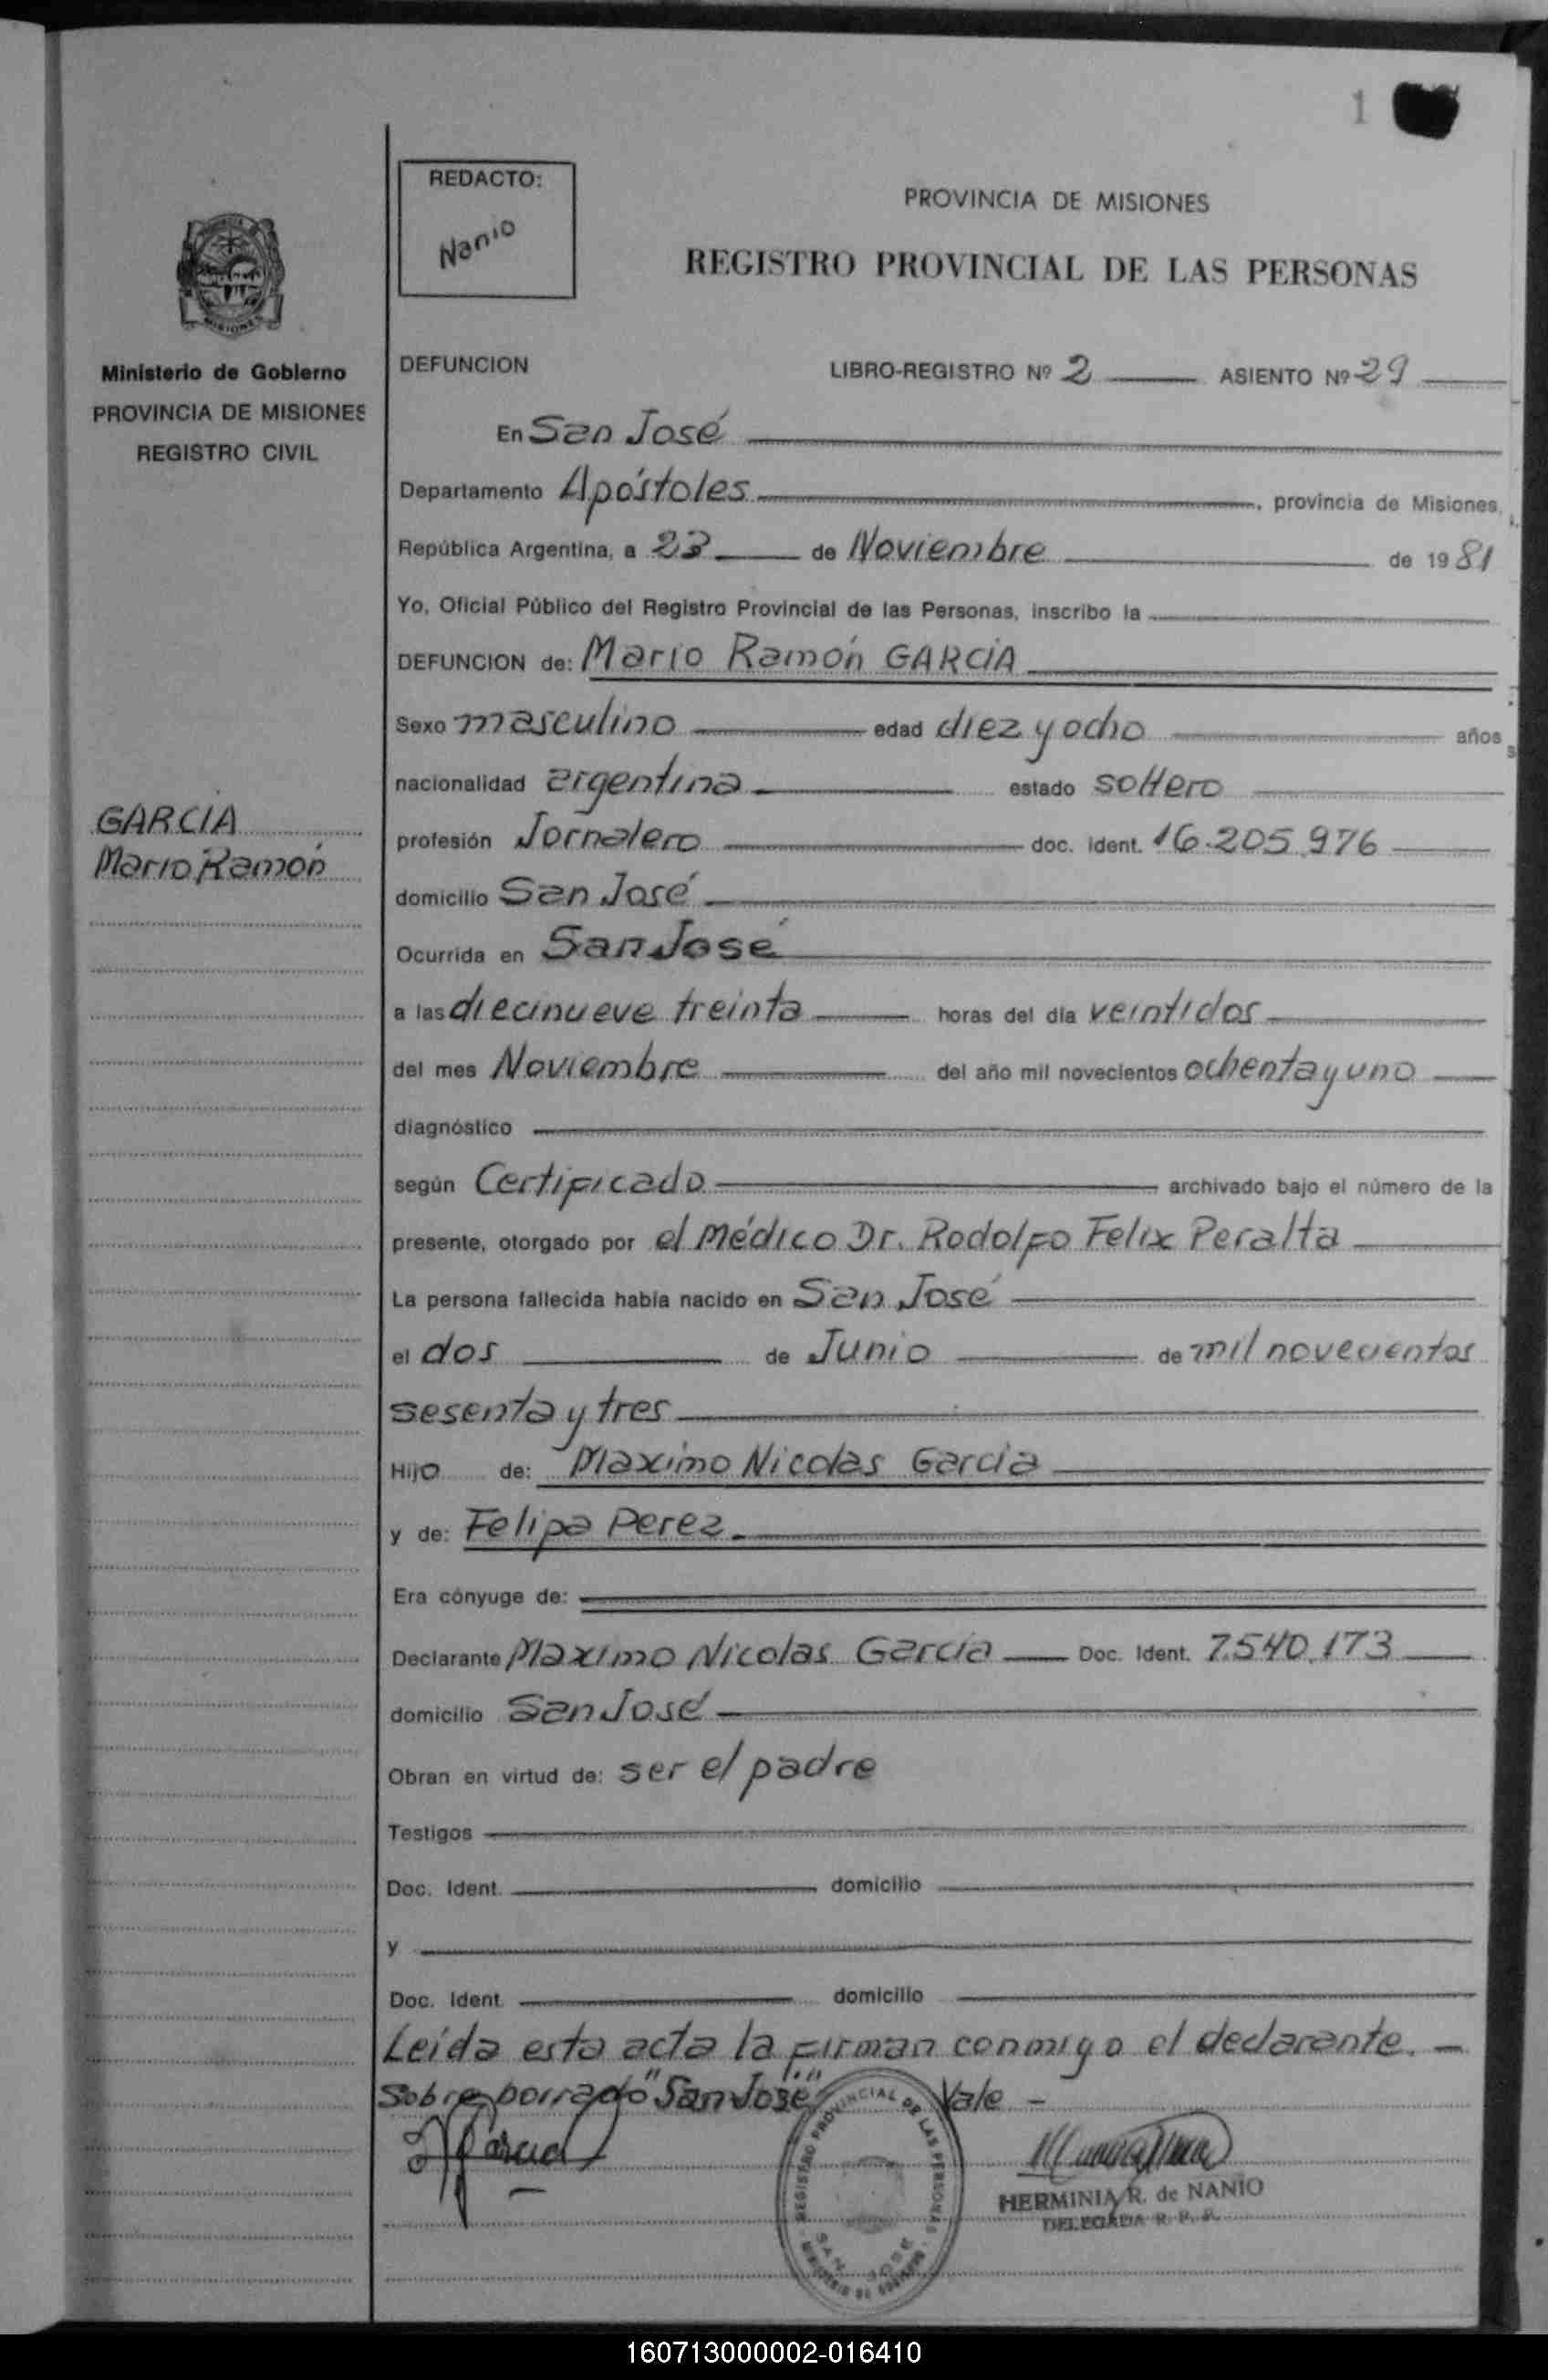 1
REDACTO:
Nanio
PROVINCIA DE MISIONES
REGISTRO PROVINCIAL DE LAS PERSONAS
MISIONES
Ministerio de Gobierno
PROVINCIA DE MISIONES
REGISTRO CIVIL
GARCIA
Mario Ramón
DEFUNCION LIBRO-REGISTRO Nº 2 ASIENTO Nº 29
En San José
Departamento Apóstoles, provincia de Misiones,
República Argentina, a 23 de Noviembre de 1981
Yo, Oficial Público del Registro Provincial de las Personas, inscribo la
DEFUNCION de: Mario Ramón GARCIA
Sexo masculino edad diez y ocho años
nacionalidad argentina estado soltero
profesión Jornalero doc. ident. 16.205.976
domicilio San José
Ocurrida en San José
a las diecinueve treinta horas del día veintidos
del mes Noviembre del año mil novecientos ochenta y uno
diagnóstico
según Certificado archivado bajo el número de la
presente, otorgado por el Médico Dr. Rodolfo Felix Peralta
La persona fallecida había nacido en San José
el dos de Junio de mil novecientos
sesenta y tres
Hijo de: Maximo Nicolas Garcia
y de: Felipa Perez
Era cónyuge de:
Declarante Maximo Nicolas Garcia Doc. Ident. 7.540.173
domicilio San José
Obran en virtud de: ser el padre
Testigos
Doc. Ident. domicilio
y
Doc. Ident. domicilio
Leida esta acta la firman conmigo el declarante. -
Sobre borrado "San José" Vale -
REGISTRO PROVINCIAL DE LAS PERSONAS
SAN JOSE
HERMINIA R. de NANIO
DELEGADA R. P. P.
160713000002-016410